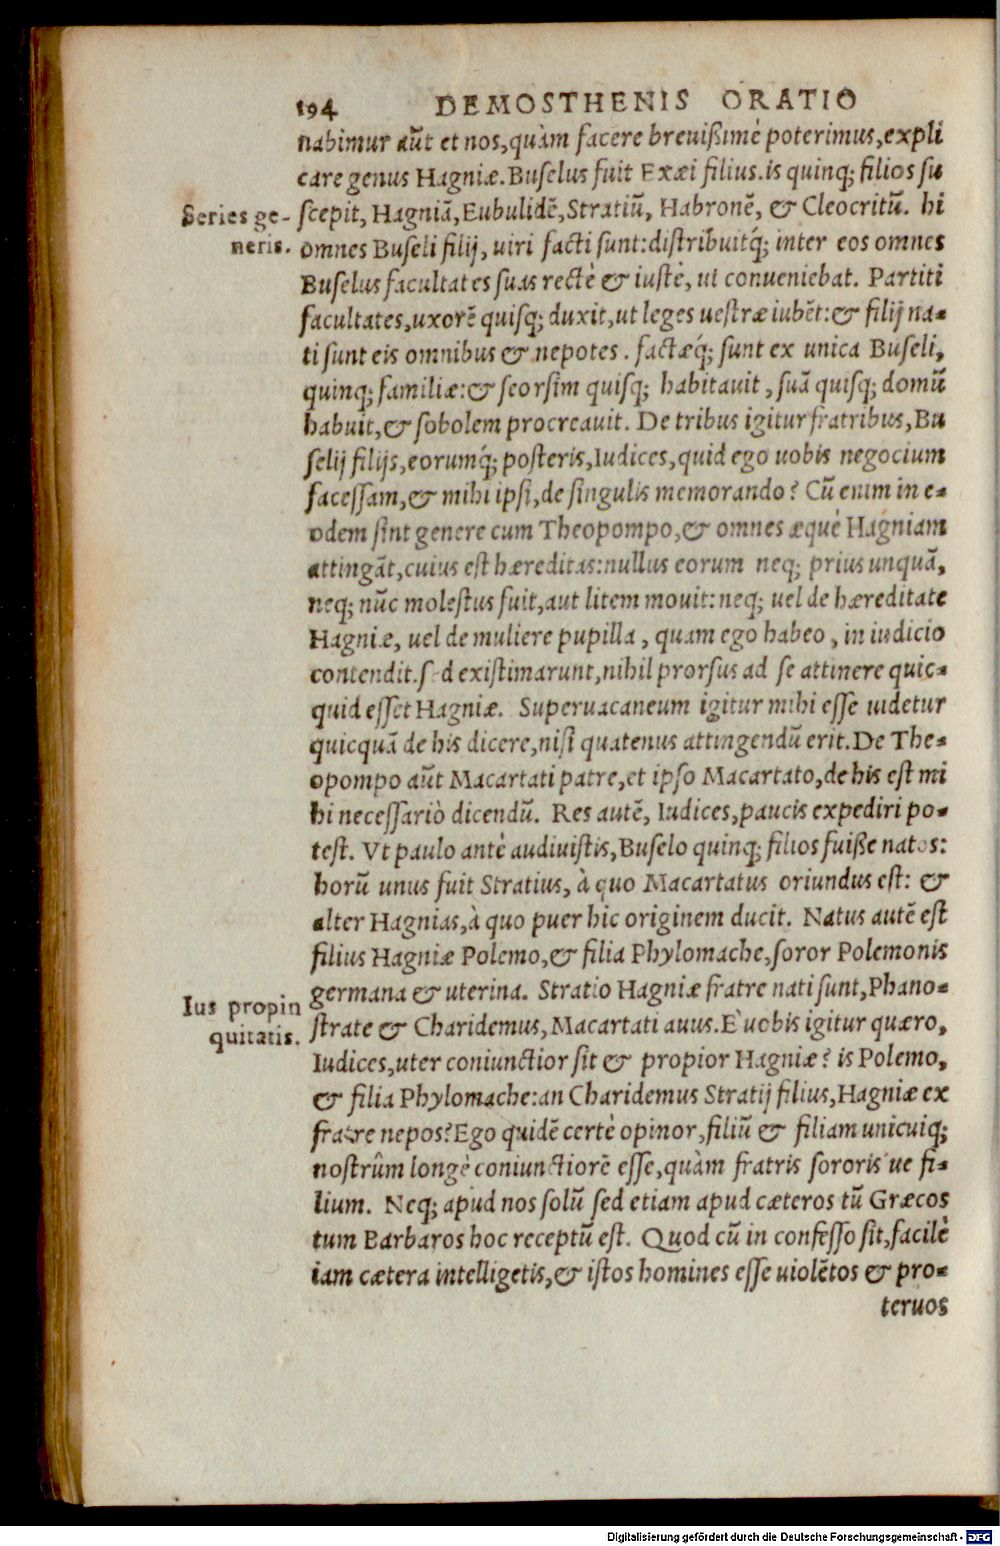 194 DEMOSTHENIS ORATIO
nabimur aũt et nos, quàm facere breuißimè poterimus, expli
care genus Hagniæ. Buselus fuit Exæi filius. is quinq; filios su
Series ge-
neris.
scepit, Hagniã, Eubulidẽ, Stratiũ, Habronẽ, & Cleocritũ. hi
omnes Buseli filij, uiri facti sunt: distribuitq́; inter eos omnes
Buselus facultates suas rectè & iustè, ut conueniebat. Partiti
facultates, uxorẽ quisq; duxit, ut leges uestræ iubẽt: & filij na-
ti sunt eis omnibus & nepotes. factæq́; sunt ex unica Buseli,
quinq; familiæ: & seorsim quisq; habitauit, suã quisq; domũ
habuit, & sobolem procreauit. De tribus igitur fratribus, Bu
selij filijs, eorumq́; posteris, Iudices, quid ego uobis negocium
facessam, & mihi ipsi, de singulis memorando? Cũ enim in e-
odem sint genere cum Theopompo, & omnes æquè Hagniam
attingãt, cuius est hæreditas: nullus eorum neq; prius unquã,
neq; nũc molestus fuit, aut litem mouit: neq; uel de hæreditate
Hagniæ, uel de muliere pupilla, quam ego habeo, in iudicio
contendit. sed existimarunt, nihil prorsus ad se attinere quic-
quid esset Hagniæ. Superuacaneum igitur mihi esse uidetur
quicquã de his dicere, nisi quatenus attingendũ erit. De The-
opompo aũt Macartati patre, et ipso Macartato, de his est mi
hi necessariò dicendũ. Res autẽ, Iudices, paucis expediri po-
test. Vt paulo antè audiuistis, Buselo quinq; filios fuiße natos:
horũ unus fuit Stratius, à quo Macartatus oriundus est: &
alter Hagnias, à quo puer hic originem ducit. Natus autẽ est
filius Hagniæ Polemo, & filia Phylomache, soror Polemonis
Ius propin
quitatis.
germana & uterina. Stratio Hagniæ fratre nati sunt, Phano-
strate & Charidemus, Macartati auus. E' uobis igitur quæro,
Iudices, uter coniunctior sit & propior Hagniæ? is Polemo,
& filia Phylomache: an Charidemus Stratij filius, Hagniæ ex
fratre nepos? Ego quidẽ certè opinor, filiũ & filiam unicuiq;
nostrûm longè coniunctiorẽ esse, quàm fratris sororis'ue fi-
lium. Neq; apud nos solũ sed etiam apud cæteros tũ Græcos
tum Barbaros hoc receptũ est. Quod cũ in confesso sit, facilè
iam cætera intelligetis, & istos homines esse uiolẽtos & pro-
teruos
Digitalisierung gefördert durch die Deutsche Forschungsgemeinschaft - DFG